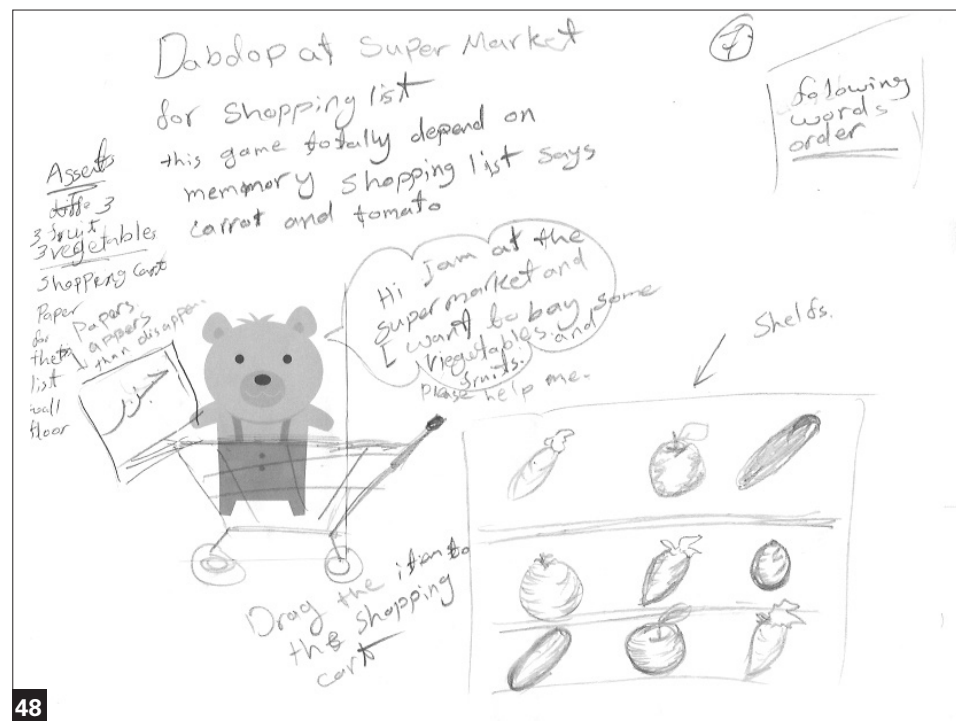 Dabdop at Super Market
for shopping list
this game totally depend on
memmory shopping list says
carrot and tomato
7
following
words
order
Assets
3
3 fruit
3 vegetables
shopping cart
Paper
for
the
list
wall
floor
Papers
appers
than disapper
Hi jam at the
supermarket and
I want to bay some
viegetables and
fruits.
Please help me.
Shelfs.
Drag the item to
the shopping
cart
48